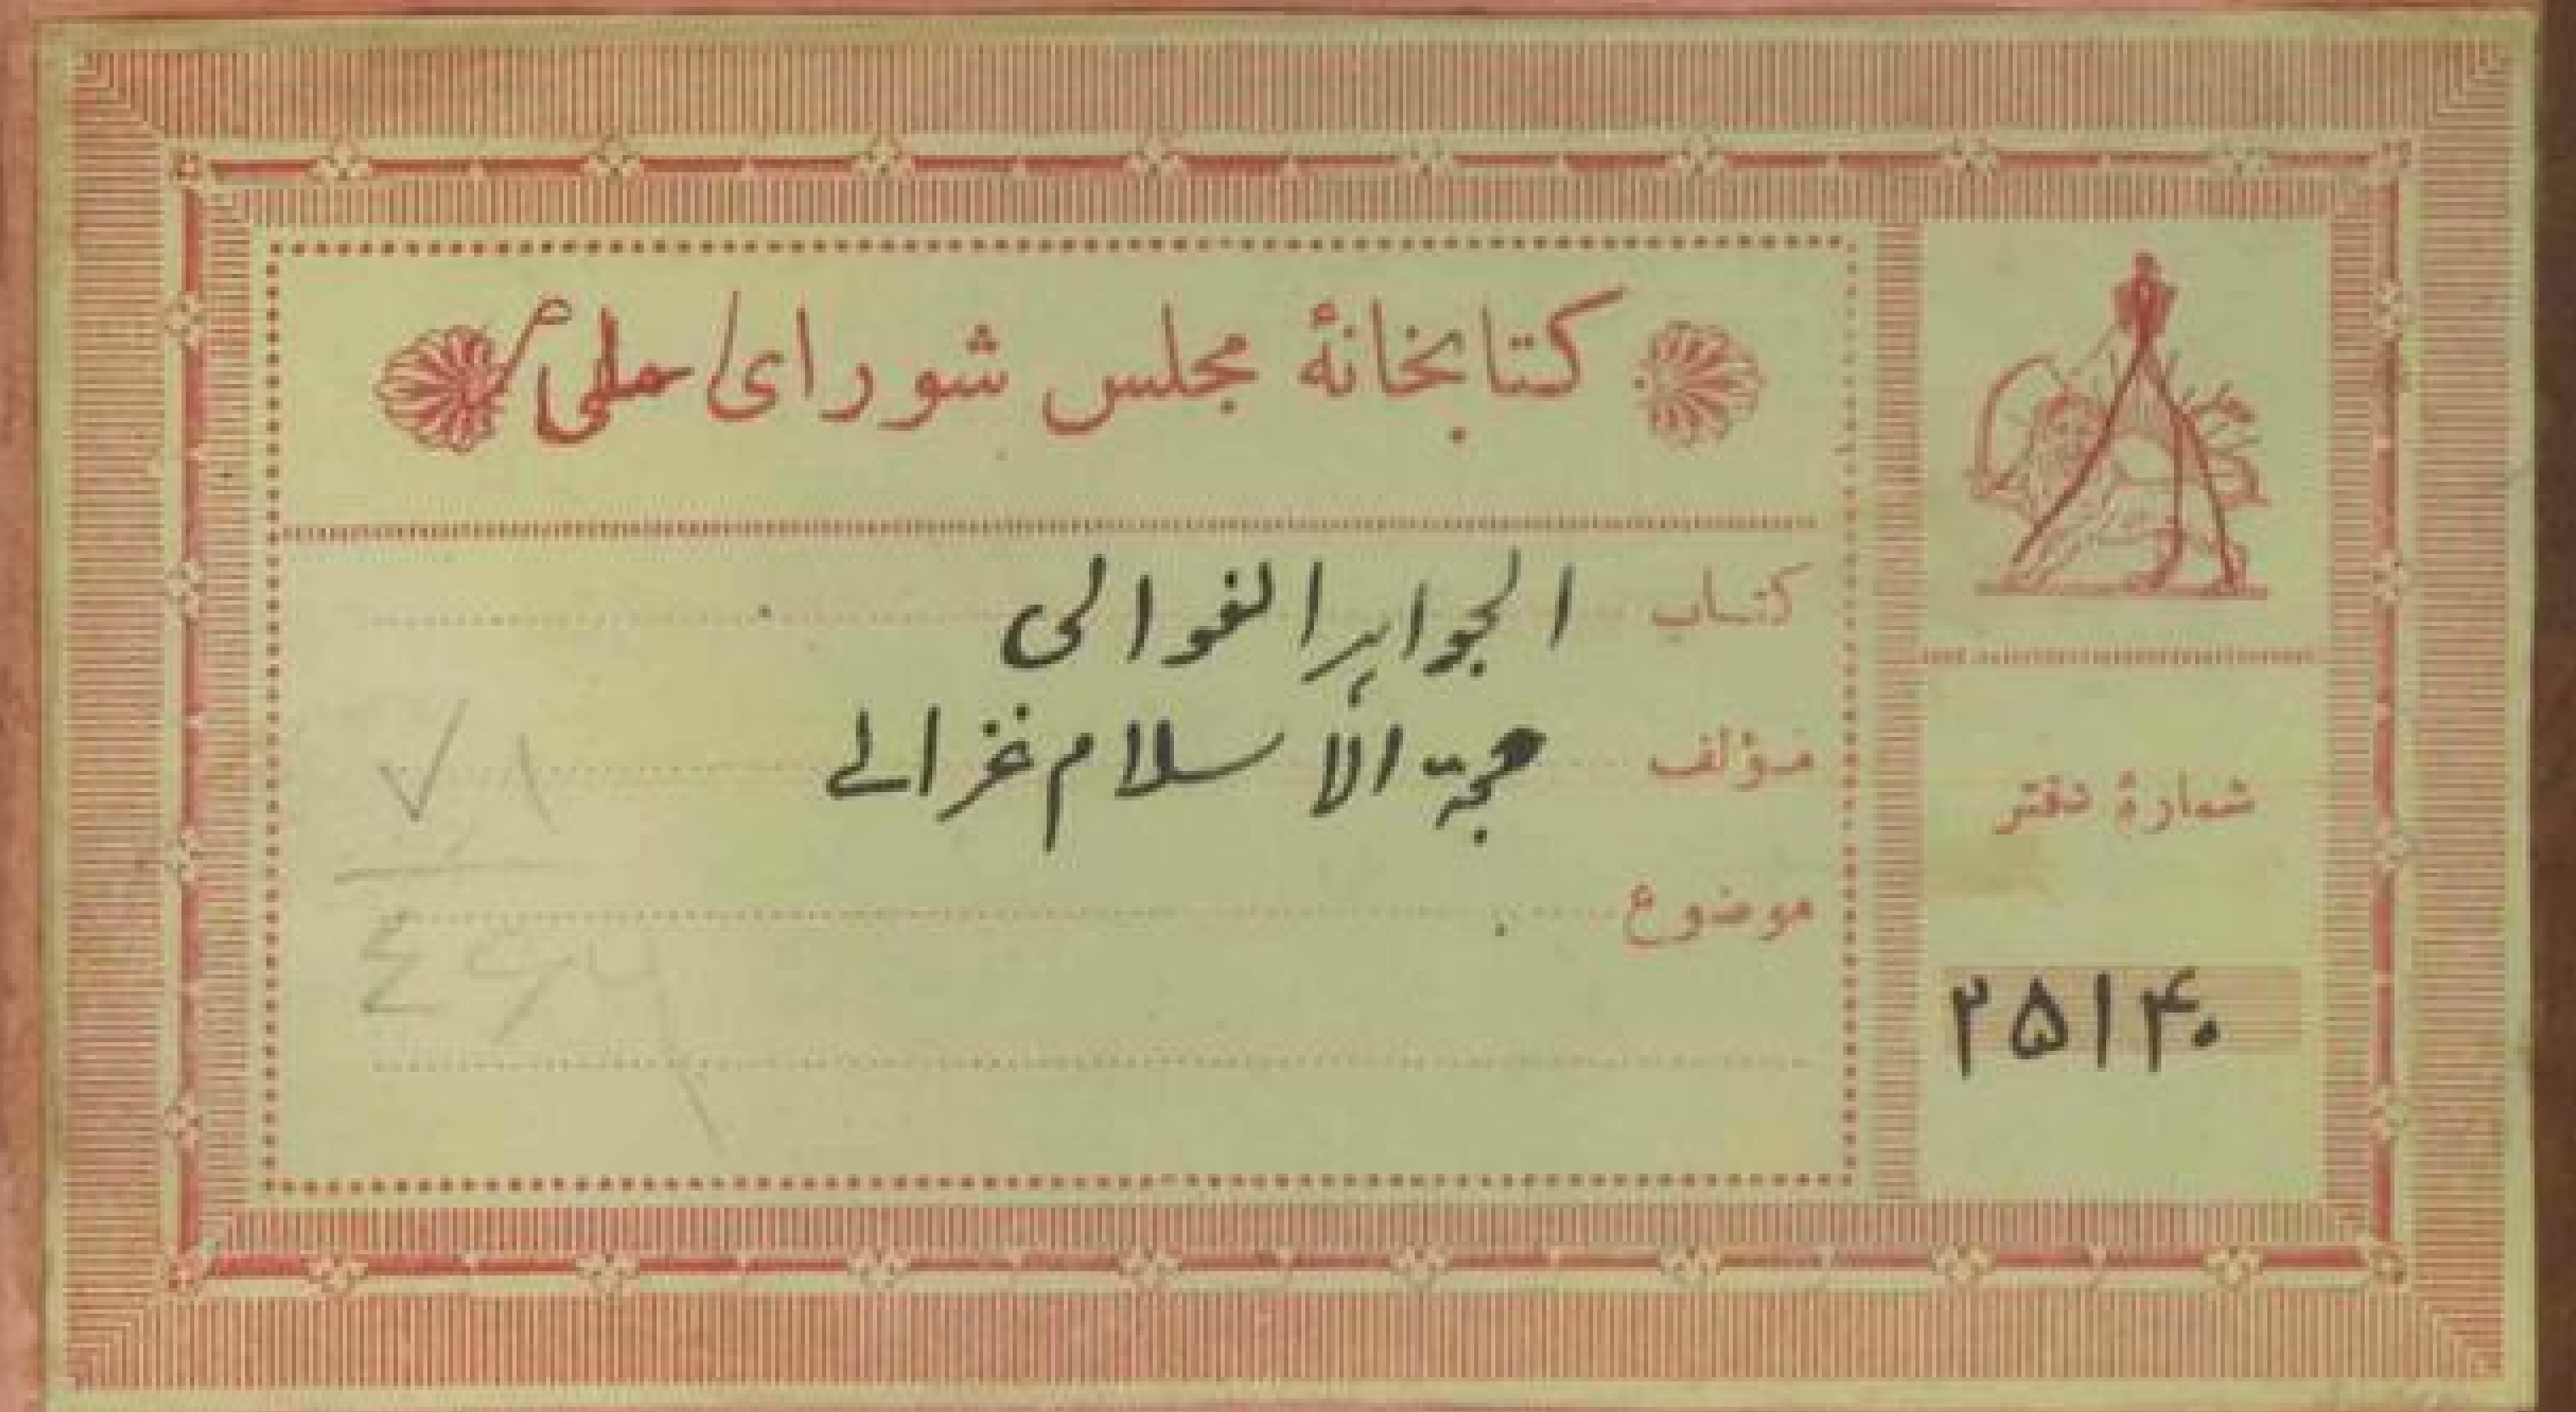 کتابخانهٔ مجلس شورای ملی
کتاب الجواهر الغوالی
مؤلف حجة الاسلام غزالے
موضوع
شمارهٔ دفتر
۲۵۱۴۰